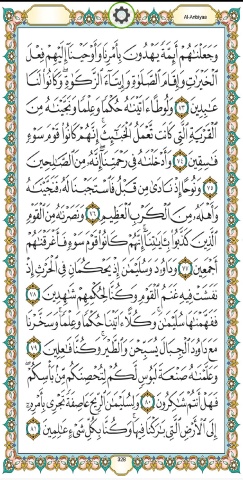 Al-Anbiyaa
وَجَعَلْنَٰهُمْ أَئِمَّةً يَهْدُونَ بِأَمْرِنَا وَأَوْحَيْنَآ إِلَيْهِمْ فِعْلَ
ٱلْخَيْرَٰتِ وَإِقَامَ ٱلصَّلَوٰةِ وَإِيتَآءَ ٱلزَّكَوٰةِ ۖ وَكَانُوا۟ لَنَا
عَٰبِدِينَ ٧٣ وَلُوطًا ءَاتَيْنَٰهُ حُكْمًا وَعِلْمًا وَنَجَّيْنَٰهُ مِنَ
ٱلْقَرْيَةِ ٱلَّتِى كَانَت تَّعْمَلُ ٱلْخَبَٰٓئِثَ ۗ إِنَّهُمْ كَانُوا۟ قَوْمَ سَوْءٍ
فَٰسِقِينَ ٧٤ وَأَدْخَلْنَٰهُ فِى رَحْمَتِنَآ ۖ إِنَّهُۥ مِنَ ٱلصَّٰلِحِينَ
٧٥ وَنُوحًا إِذْ نَادَىٰ مِن قَبْلُ فَٱسْتَجَبْنَا لَهُۥ فَنَجَّيْنَٰهُ
وَأَهْلَهُۥ مِنَ ٱلْكَرْبِ ٱلْعَظِيمِ ٧٦ وَنَصَرْنَٰهُ مِنَ ٱلْقَوْمِ
ٱلَّذِينَ كَذَّبُوا۟ بِـَٔايَٰتِنَآ ۚ إِنَّهُمْ كَانُوا۟ قَوْمَ سَوْءٍ فَأَغْرَقْنَٰهُمْ
أَجْمَعِينَ ٧٧ وَدَاوُۥدَ وَسُلَيْمَٰنَ إِذْ يَحْكُمَانِ فِى ٱلْحَرْثِ إِذْ
نَفَشَتْ فِيهِ غَنَمُ ٱلْقَوْمِ وَكُنَّا لِحُكْمِهِمْ شَٰهِدِينَ ٧٨
فَفَهَّمْنَٰهَا سُلَيْمَٰنَ ۚ وَكُلًّا ءَاتَيْنَا حُكْمًا وَعِلْمًا ۚ وَسَخَّرْنَا
مَعَ دَاوُۥدَ ٱلْجِبَالَ يُسَبِّحْنَ وَٱلطَّيْرَ ۚ وَكُنَّا فَٰعِلِينَ ٧٩
وَعَلَّمْنَٰهُ صَنْعَةَ لَبُوسٍ لَّكُمْ لِتُحْصِنَكُم مِّنۢ بَأْسِكُمْ ۖ
فَهَلْ أَنتُمْ شَٰكِرُونَ ٨٠ وَلِسُلَيْمَٰنَ ٱلرِّيحَ عَاصِفَةً تَجْرِى بِأَمْرِهِۦٓ
إِلَى ٱلْأَرْضِ ٱلَّتِى بَٰرَكْنَا فِيهَا ۚ وَكُنَّا بِكُلِّ شَىْءٍ عَٰلِمِينَ ٨١
328